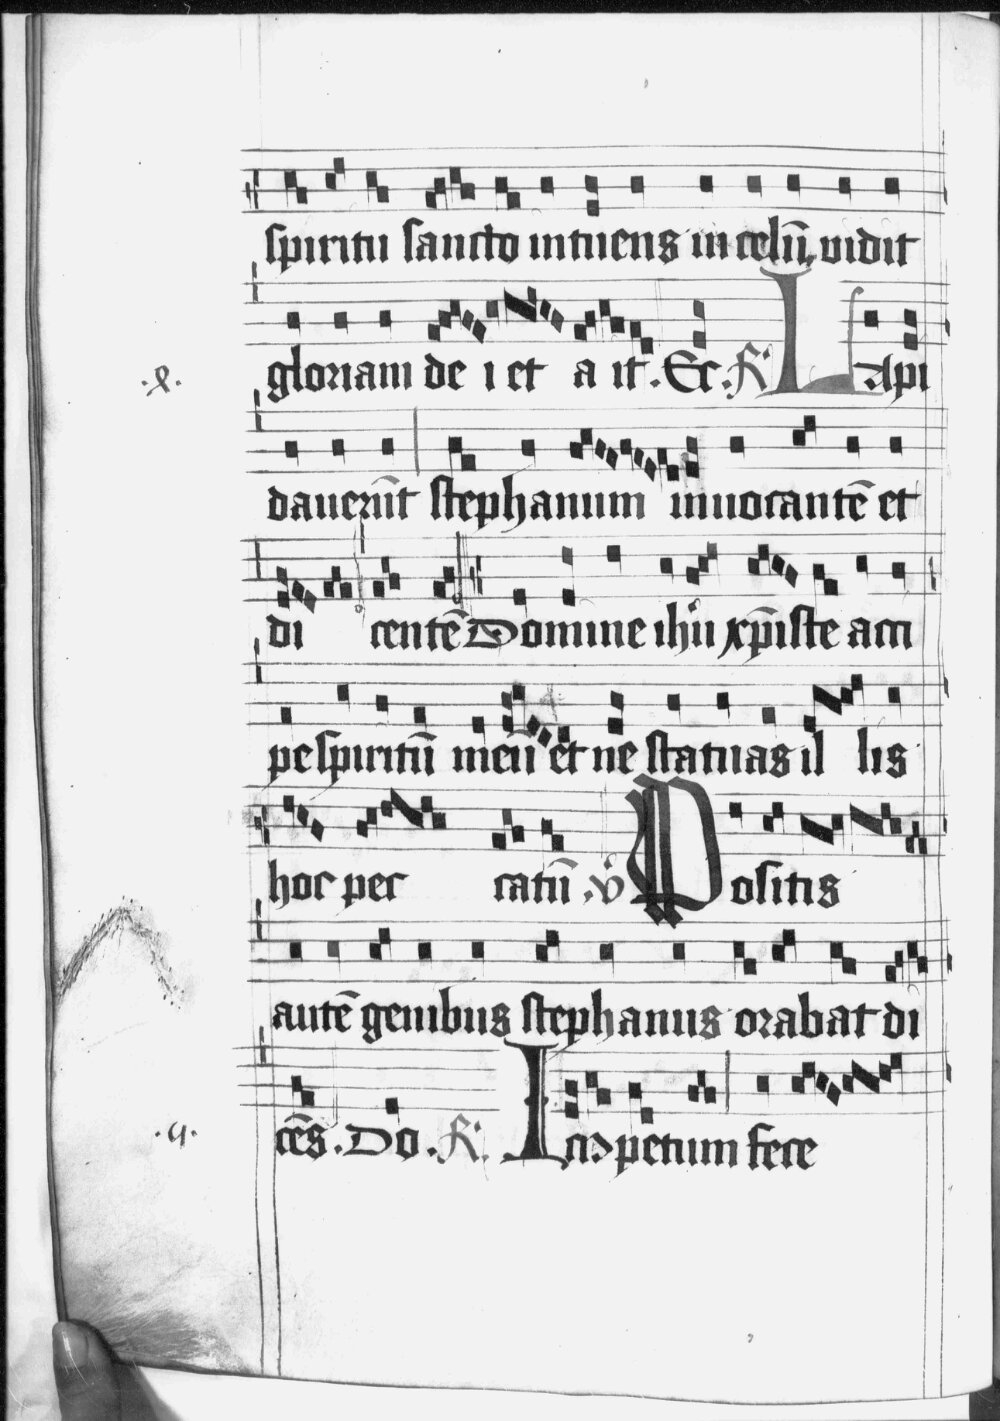 spiritu sancto intuens in celū uidit
gloriam de i et a it. Et. R̃ Lapi
dauerūt stephanum inuocantē et
di centē Domine ihū xp̄iste acci
pe spiritū meū et ne statuas il lis
hoc pec catū. v̾ Positis
autē genibus stephanus orabat di
cēs. Do. R̃. Impetum fece